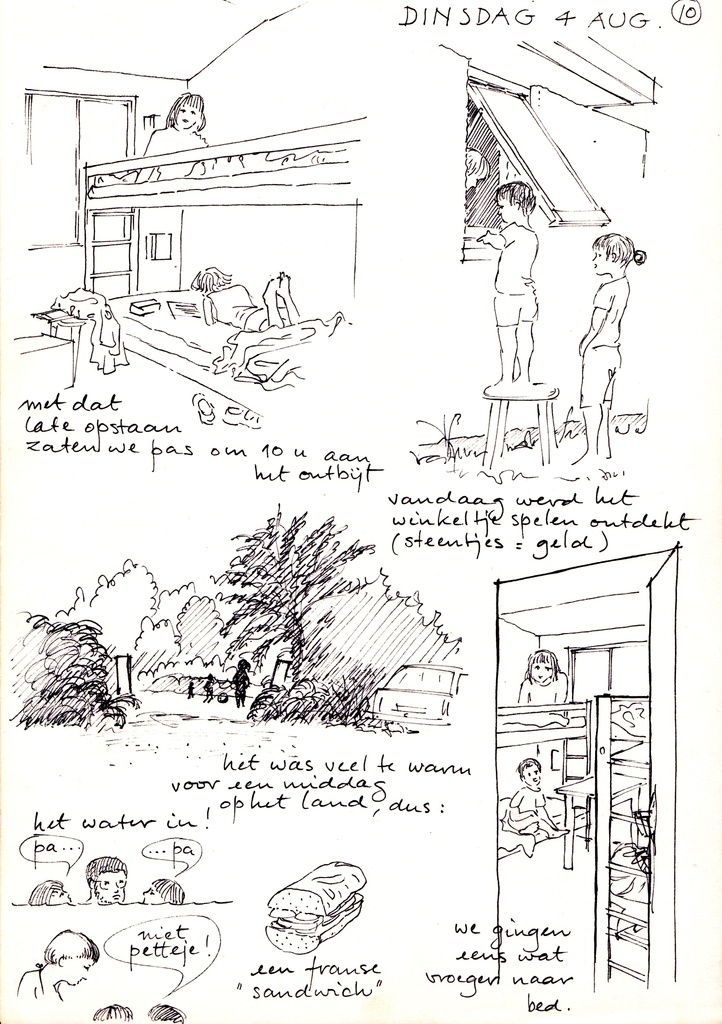 DINSDAG 4 AUG. 10
met dat
late opstaan
zaten we pas om 10 u aan
het ontbijt
vandaag werd het
winkeltje spelen ontdekt
(steentjes = geld)
het was veel te warm
voor een middag
op het land, dus:
het water in!
pa...
...pa
niet
petteje!
een franse
"sandwich"
we gingen
eens wat
vroeger naar
bed.